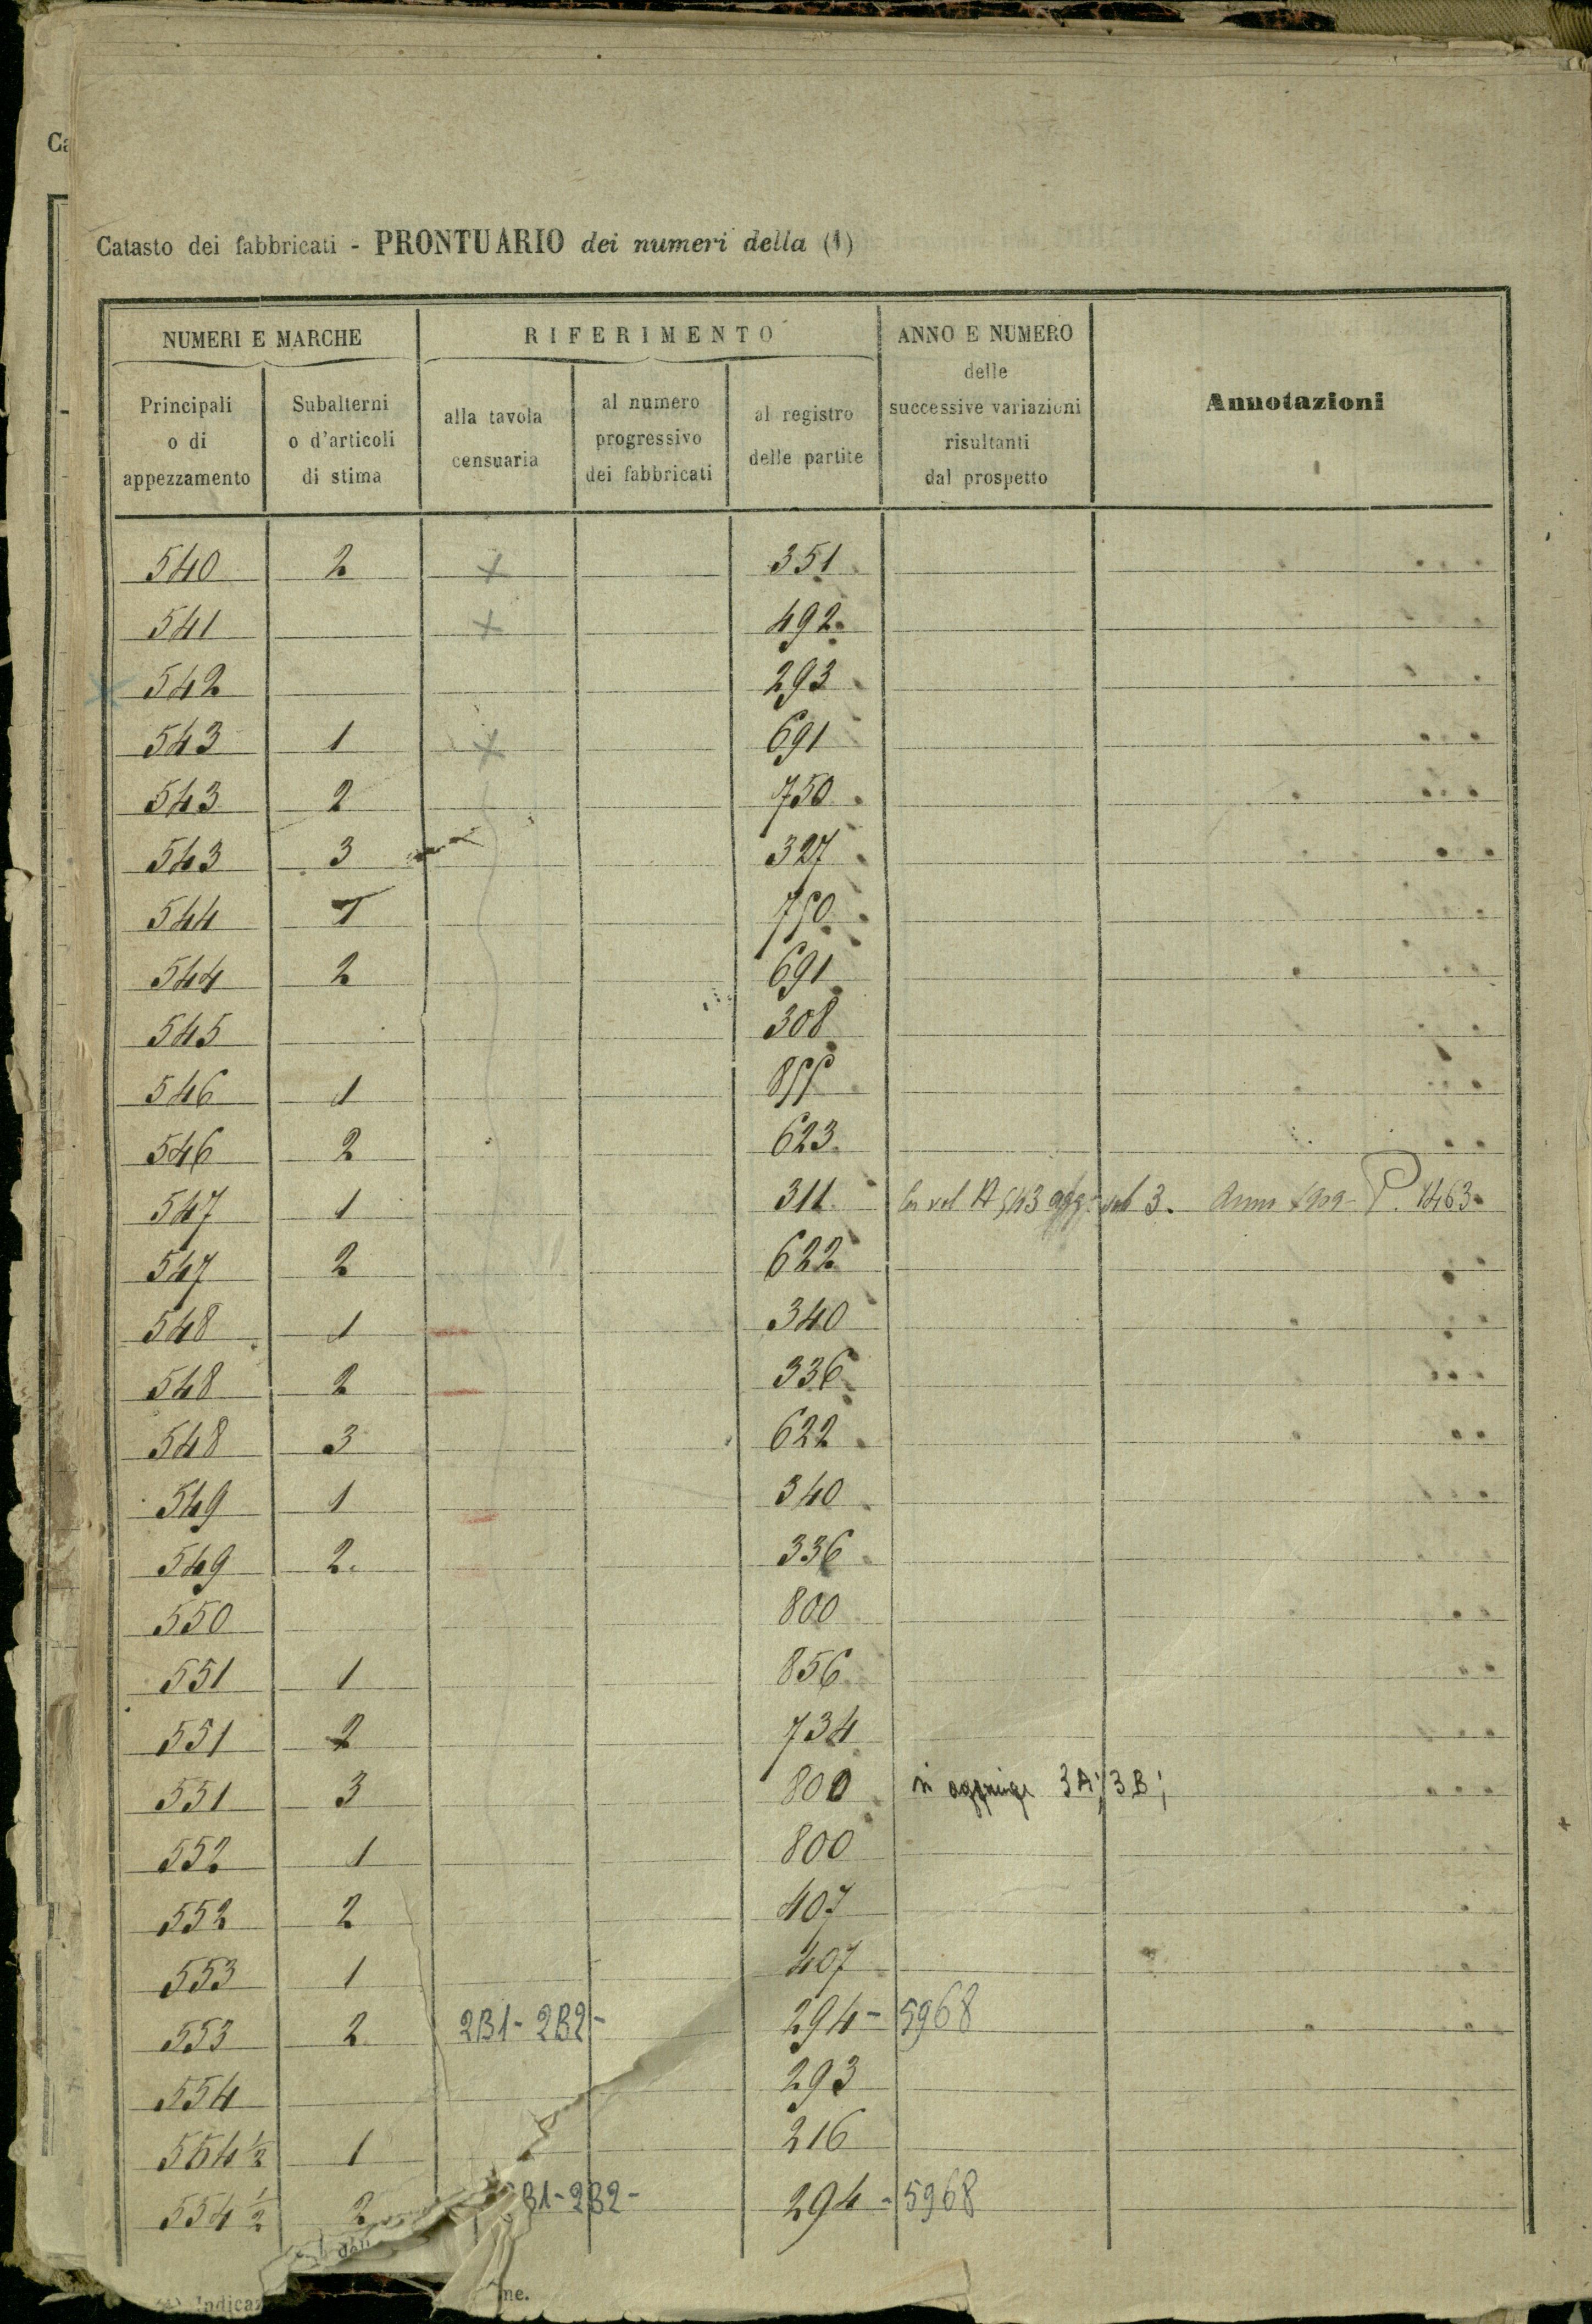 Ca
Catasto dei fabbricati - PRONTUARIO dei numeri della (1)
NUMERI E MARCHE
RIFERIMENTO
ANNO E NUMERO
delle
successive variazioni
risultanti
dal prospetto
Annotazioni
Principali
o di
appezzamento
Subalterni
o d'articoli
di stima
alla tavola
censuaria
al numero
progressivo
dei fabbricati
al registro
delle partite
540 2 x 351
541 x 492
542 293
543 1 x 691
543 2 750
543 3 327
544 1 750
544 2 691
545 308
546 1 855
546 2 623
547 1 311 3. Anno 1909 - P. 1463
547 2 622
548 1 340
548 2 336
548 3 622
549 1 340
549 2. 336
550 800
551 1 856
551 2 734
551 3 800 si aggiunge 3A; 3B;
552 1 800
552 2 407
553 1 407
553 2 2B1-2B2- 294- 5968
554 293
554 1/2 1 216
554 1/2 2 B1-2B2- 294- 5968
(1) Indicaz
me.